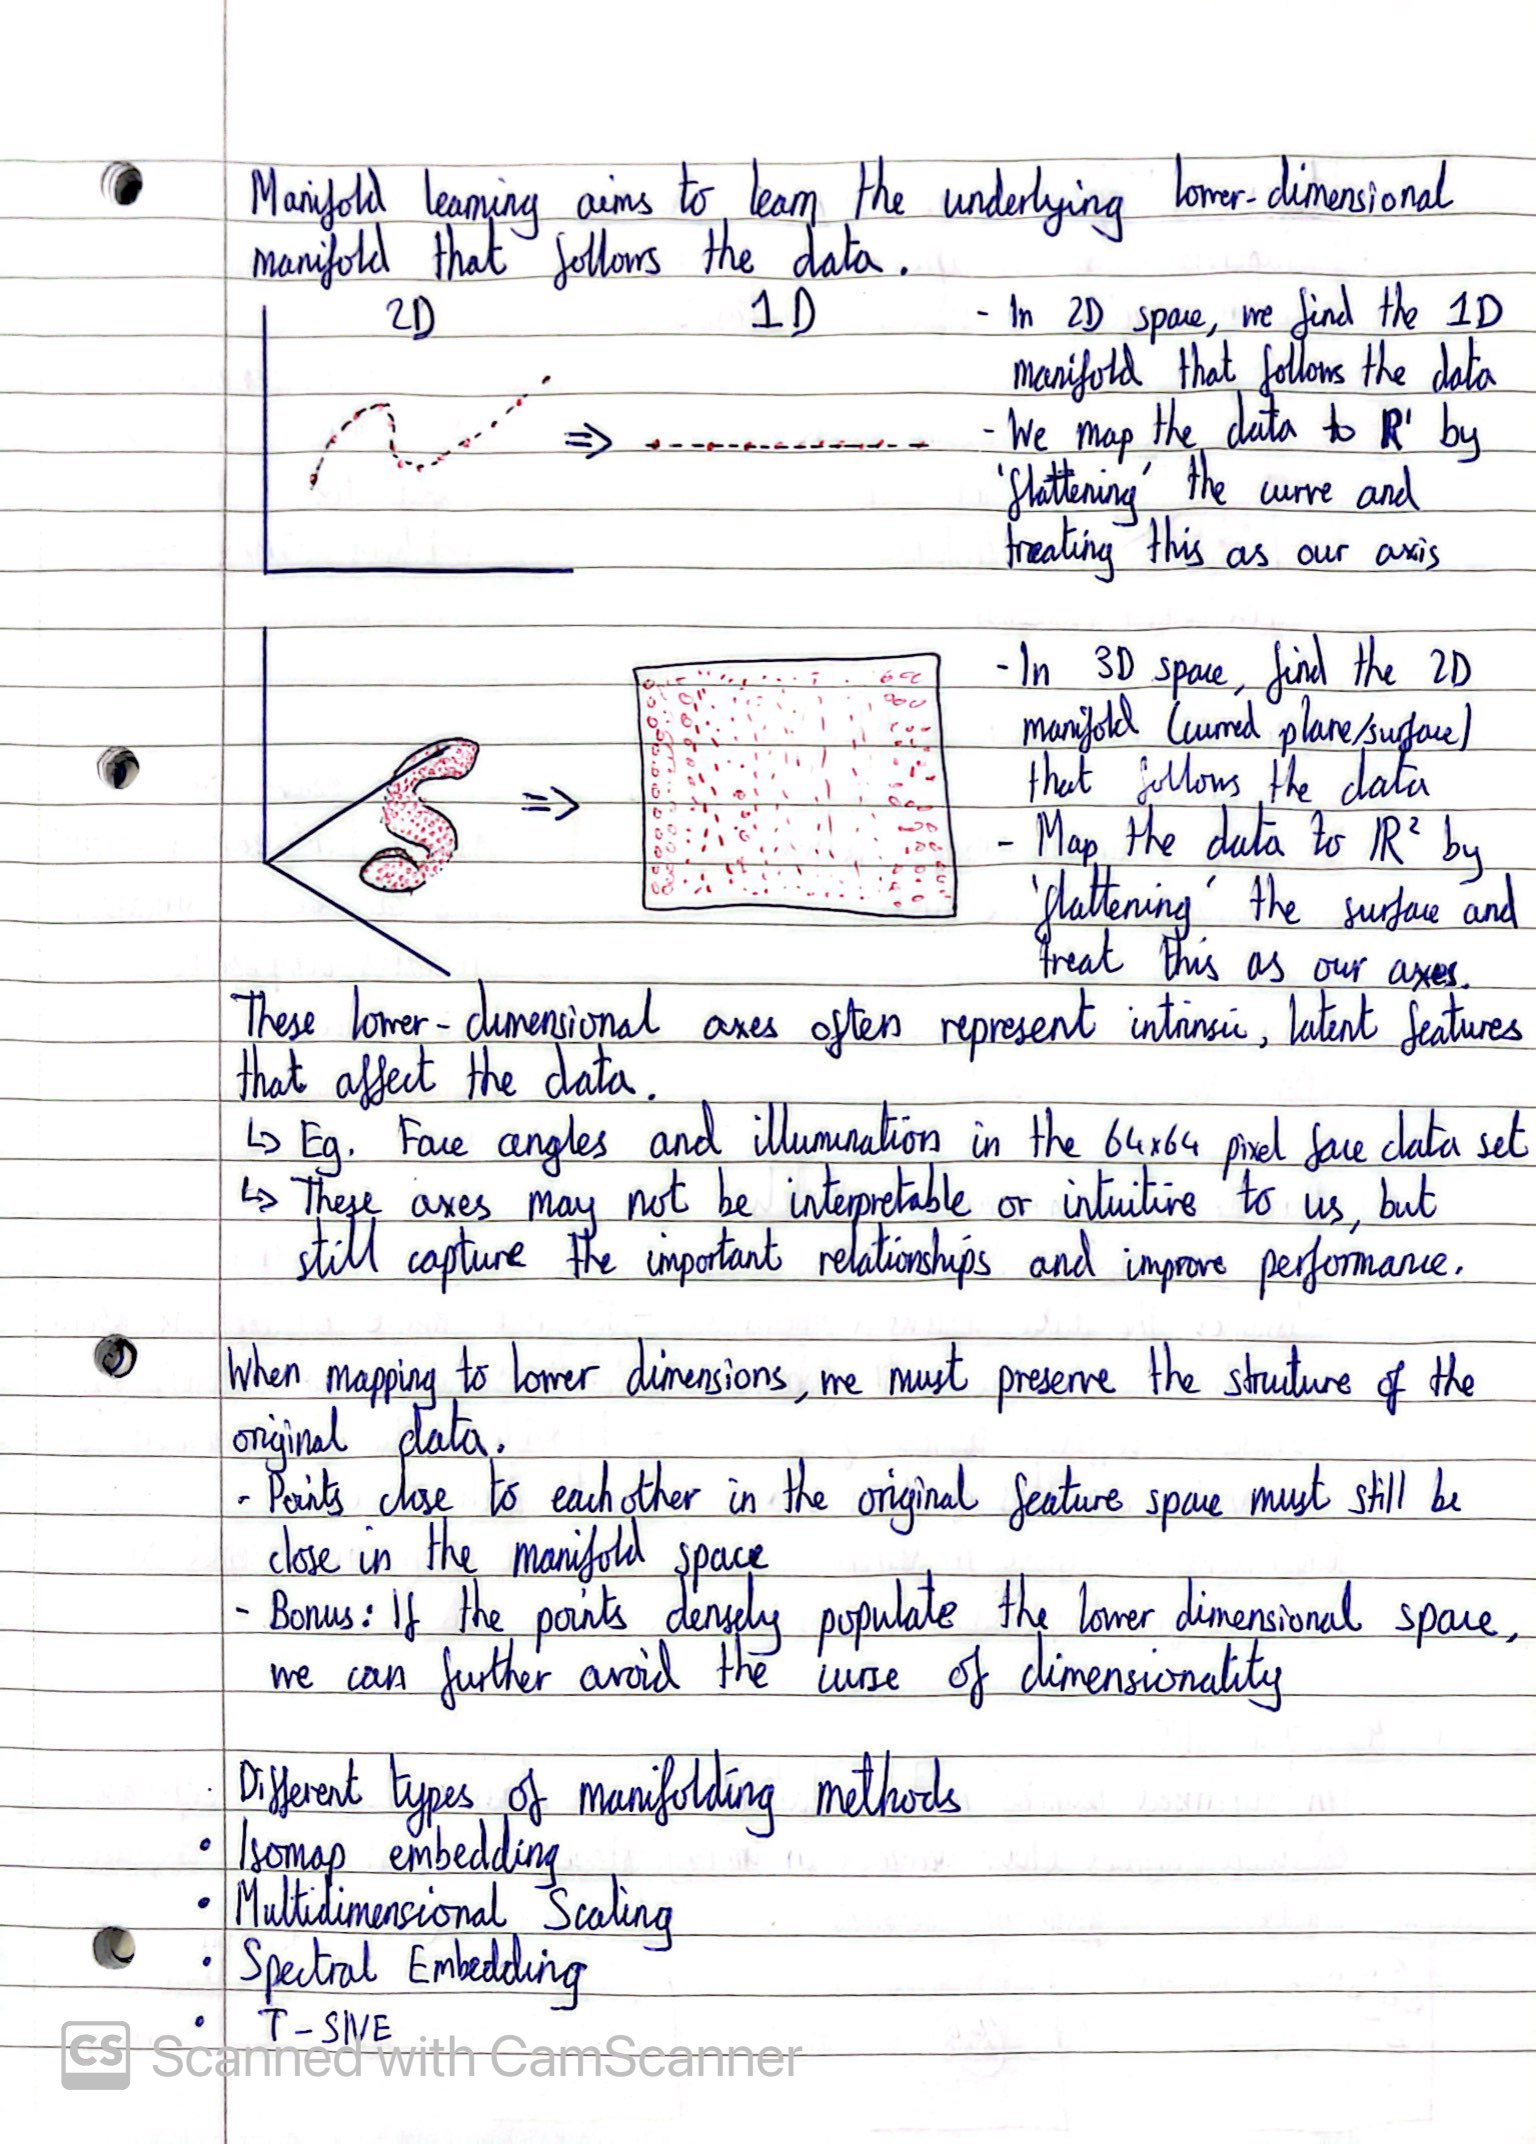 Manifold learning aims to learn the underlying lower-dimensional
manifold that follows the data.
2D
1D
- In 2D space, we find the 1D
manifold that follows the data
- We map the data to R¹ by
'flattening' the curve and
treating this as our axis
- In 3D space, find the 2D
manifold (curved plane/surface)
that follows the data
- Map the data to ℝ² by
'flattening' the surface and
treat this as our axes.
These lower-dimensional axes often represent intrinsic, latent features
that affect the data.
↳ Eg. Face angles and illumination in the 64x64 pixel face data set
↳ These axes may not be interpretable or intuitive to us, but
still capture the important relationships and improve performance.
When mapping to lower dimensions, we must preserve the structure of the
original data.
- Points close to each other in the original feature space must still be
close in the manifold space
- Bonus: If the points densely populate the lower dimensional space,
we can further avoid the curse of dimensionality
Different types of manifolding methods
• Isomap embedding
• Multidimensional Scaling
• Spectral Embedding
• T-SNE
CS Scanned with CamScanner